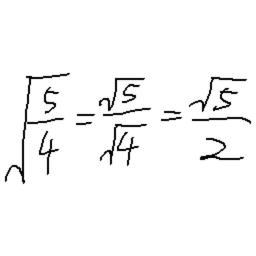 √(5/4) = √5/√4 = √5/2